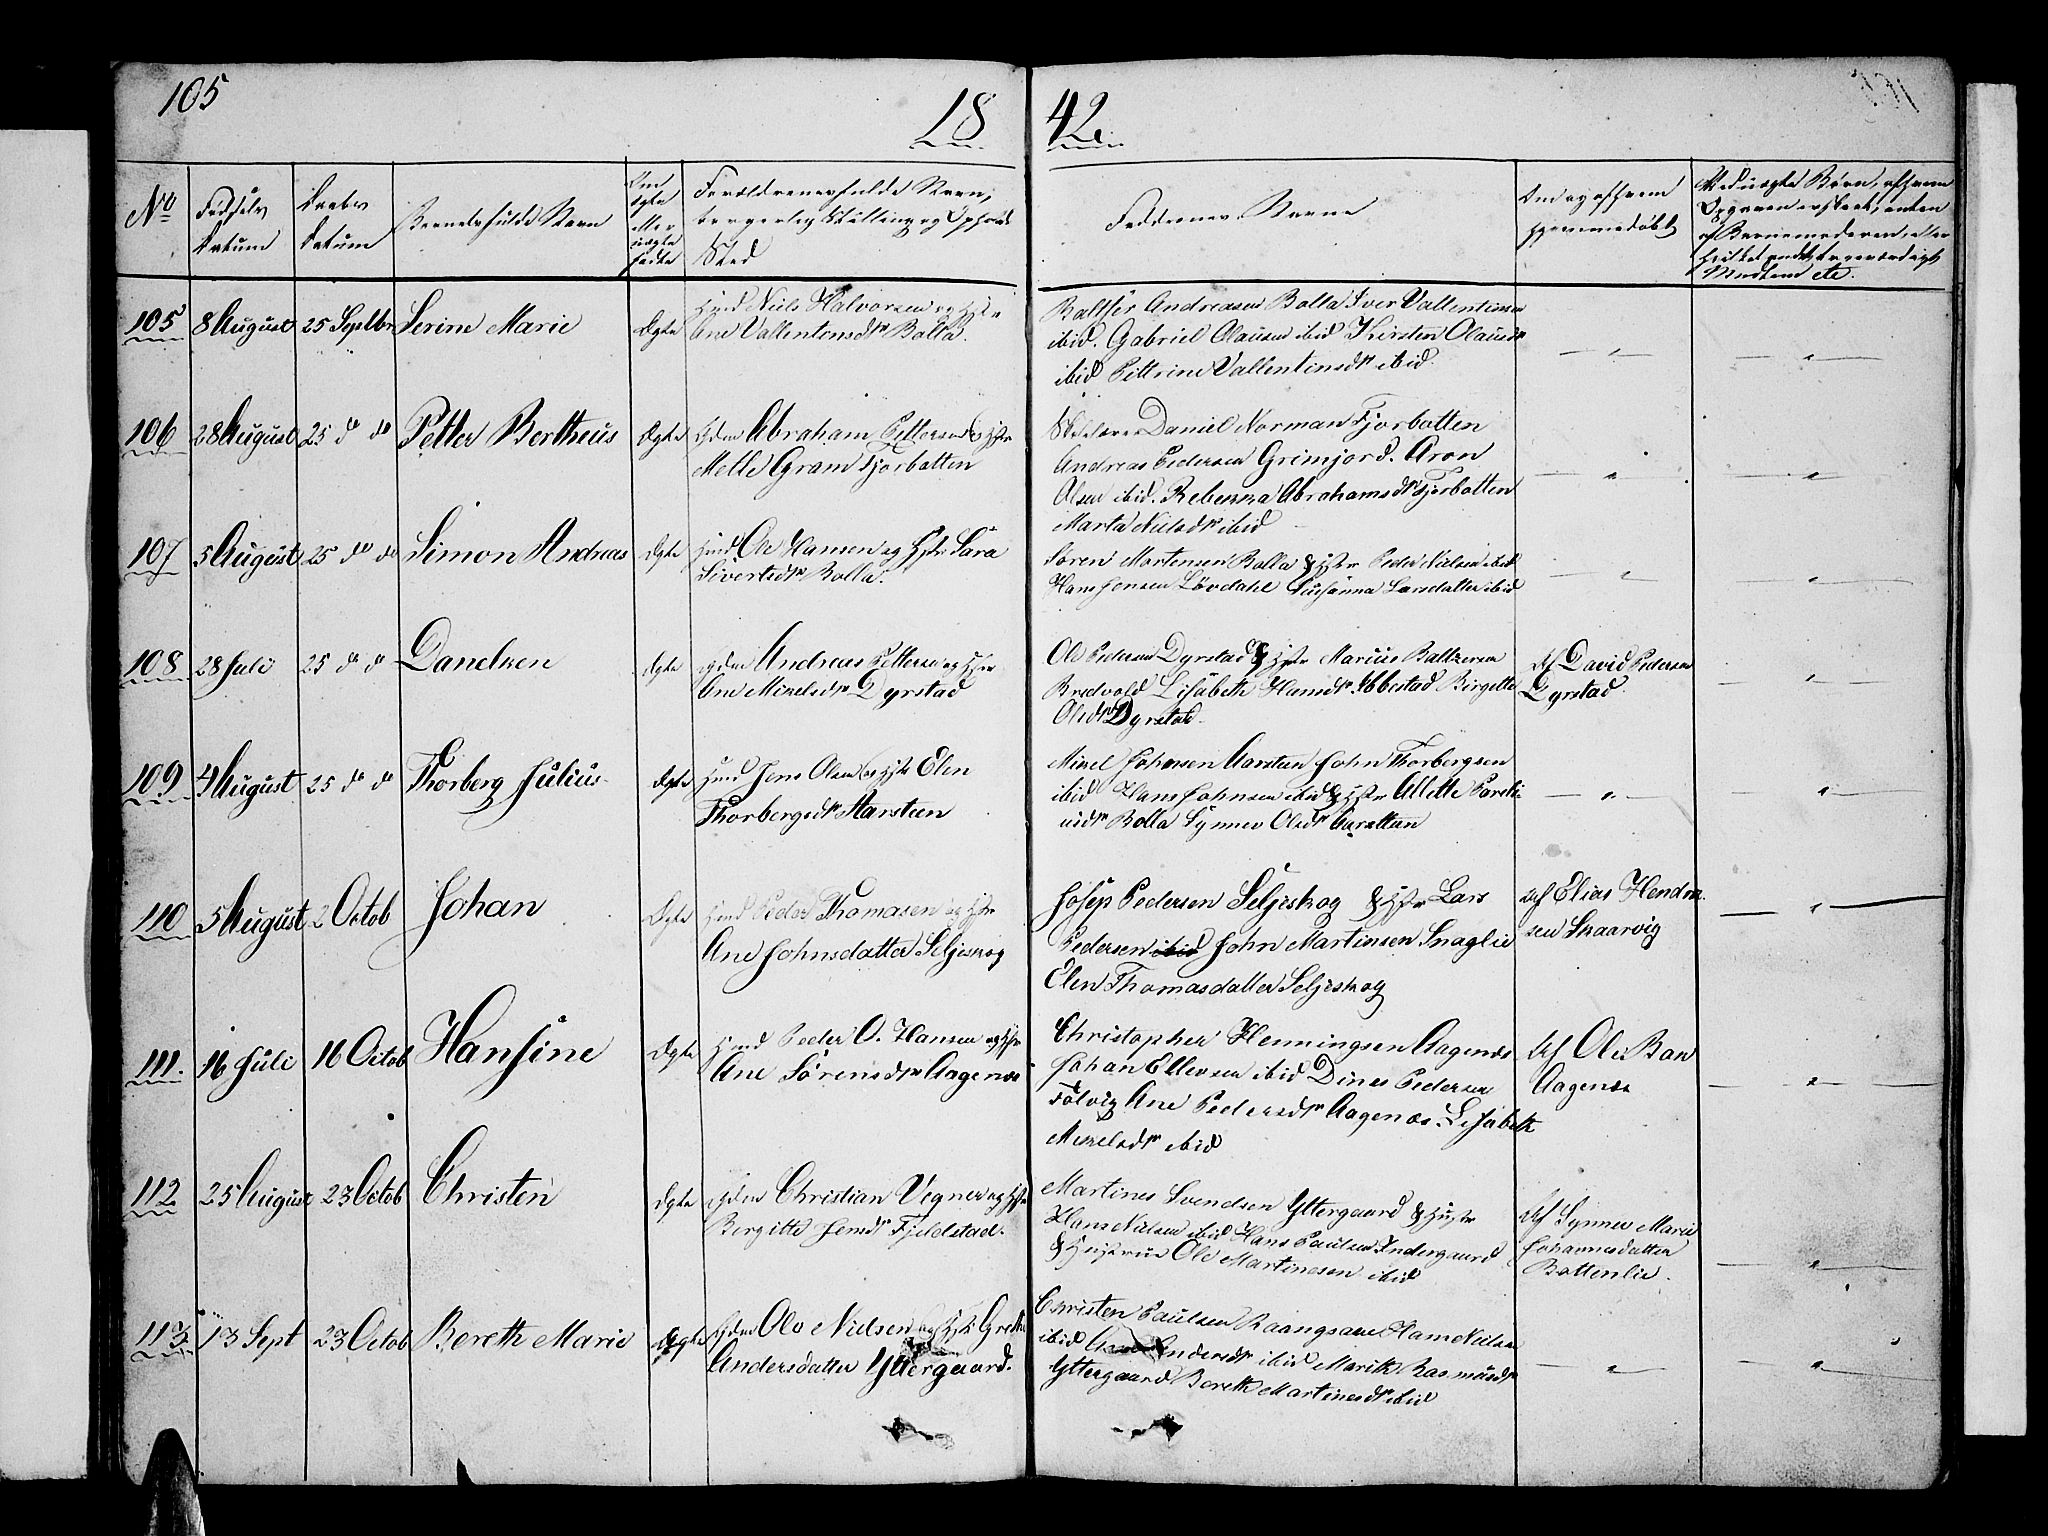 105
18 42
No
Fødsels Datum
Daabs Datum
Barnets fulde Navn
Om Ægte eller uægte fødte
Forældrenes fulde Navn, borgerlig Stilling og Opholds Sted
Faddernes Navne
Om og af hvem hjemmedøbt
105 8 August 25 Septbr Serine Marie Ægte
Huusmd Niels Halvorsen og Hstr
Ane Vallentinsdr Bolla.
Balthser Andreasen Bolla Iver Vallentinsen
ibid. Gabriel Olausen ibid Kirsten Olausdr
ibid Pettrine Vallentinsdr ibid.
— " —
— " —
106 28 August 25 do do Petter Bertheus Ægte
Gdm Abraham Pettersen & Hstr
Melle Gram Fjorbotten
Daniel Norman Fjorbotten
Andreas Pedersen Grimjord. Aron
Olsen ibid. Rebekka Abrahamsdr Fjorbotten
Marta Nielsdr ibid
— " —
— " —
107 5 August 25 do do Simon Andreas Ægte
Huusmd Ole Hansen og Hstr Sara
Sivertsdr Bolla.
Søren Mortensen Bolla & Hstr Peder Nielsen ibid
Hans Jensen Lövdahl Susanna Larsdatter ibid
— " —
— " —
108 28 Juli 25 do do Danelsen Ægte
Gdm Andreas Pettersen og Hstr
Ane Mikelsdr Dyrstad
Ole Pedersen Dyrstad & Hstr Marius Baltzersen
Bredvold Lisabeth Hansdr Ibbestad Birgitte
Olsdr Dyrstad.
Af David Pedersen
Dyrstad.
— " —
109 4 August 25 do do Thorberg Julius Ægte
Huusmd Jens Olsen og Hstr Elen
Thorbergsdr Aarsteen
Mikel Johnsen Aarsteen John Thorbergsen
ibid Hans Johnsen ibid & Hstr Allette Pareli-
usdr Bolla Synnev Olsdr Aarsteen
— " —
— " —
110 5 August 2 Octob Johan Ægte
Huusmd Peder Thomasen og Hstr
Ane Johnsdatter Seljeskog
Josep Pedersen Seljeskog & Hstr Lars
Pedersen ibid John Martinsen Snaglie
Elen Thomasdatter Seljeskog
Af Elias Hendrik-
sen Skaarvig
— " —
111. 16 Juli 16 Octob Hansine Ægte
Huusmd Peder O. Hansen og Hstr
Ane Sörensdr Aagenæs
Christopher Henningsen Aagenæs
Johan Ellevsen ibid Dines Pedersen
Folvig Ane Pedersdr Aagenæs Lisabeth
Mikelsdr ibid
Af Ole Bær
Aagenæs
— " —
112 25 August 23 Octob Christen Ægte
Gdm Christian Vegner og Hstr
Bergitte Jensdr Fjeldstad.
Martines Svendsen Yttergaard & Hustr
Hans Nielsen ibid Hans Paulsen Indergaard
& Hustrue Ole Martinesen ibid
Af Synnev Marie
Johannesdatter
Bottenlie.
— " —
113. 13 Sept 23 Octob Bereth Marie Ægte
Gdm Ole Nielsen og Hstr Grethe
Andersdatter Yttergaard.
Christen Paulsen Raangsaae Hans Nielsen
ibid Ane Andersdr ibid Marith Rasmusdr
Yttergaard Bereth Martinesdr ibid
— " —
— " —